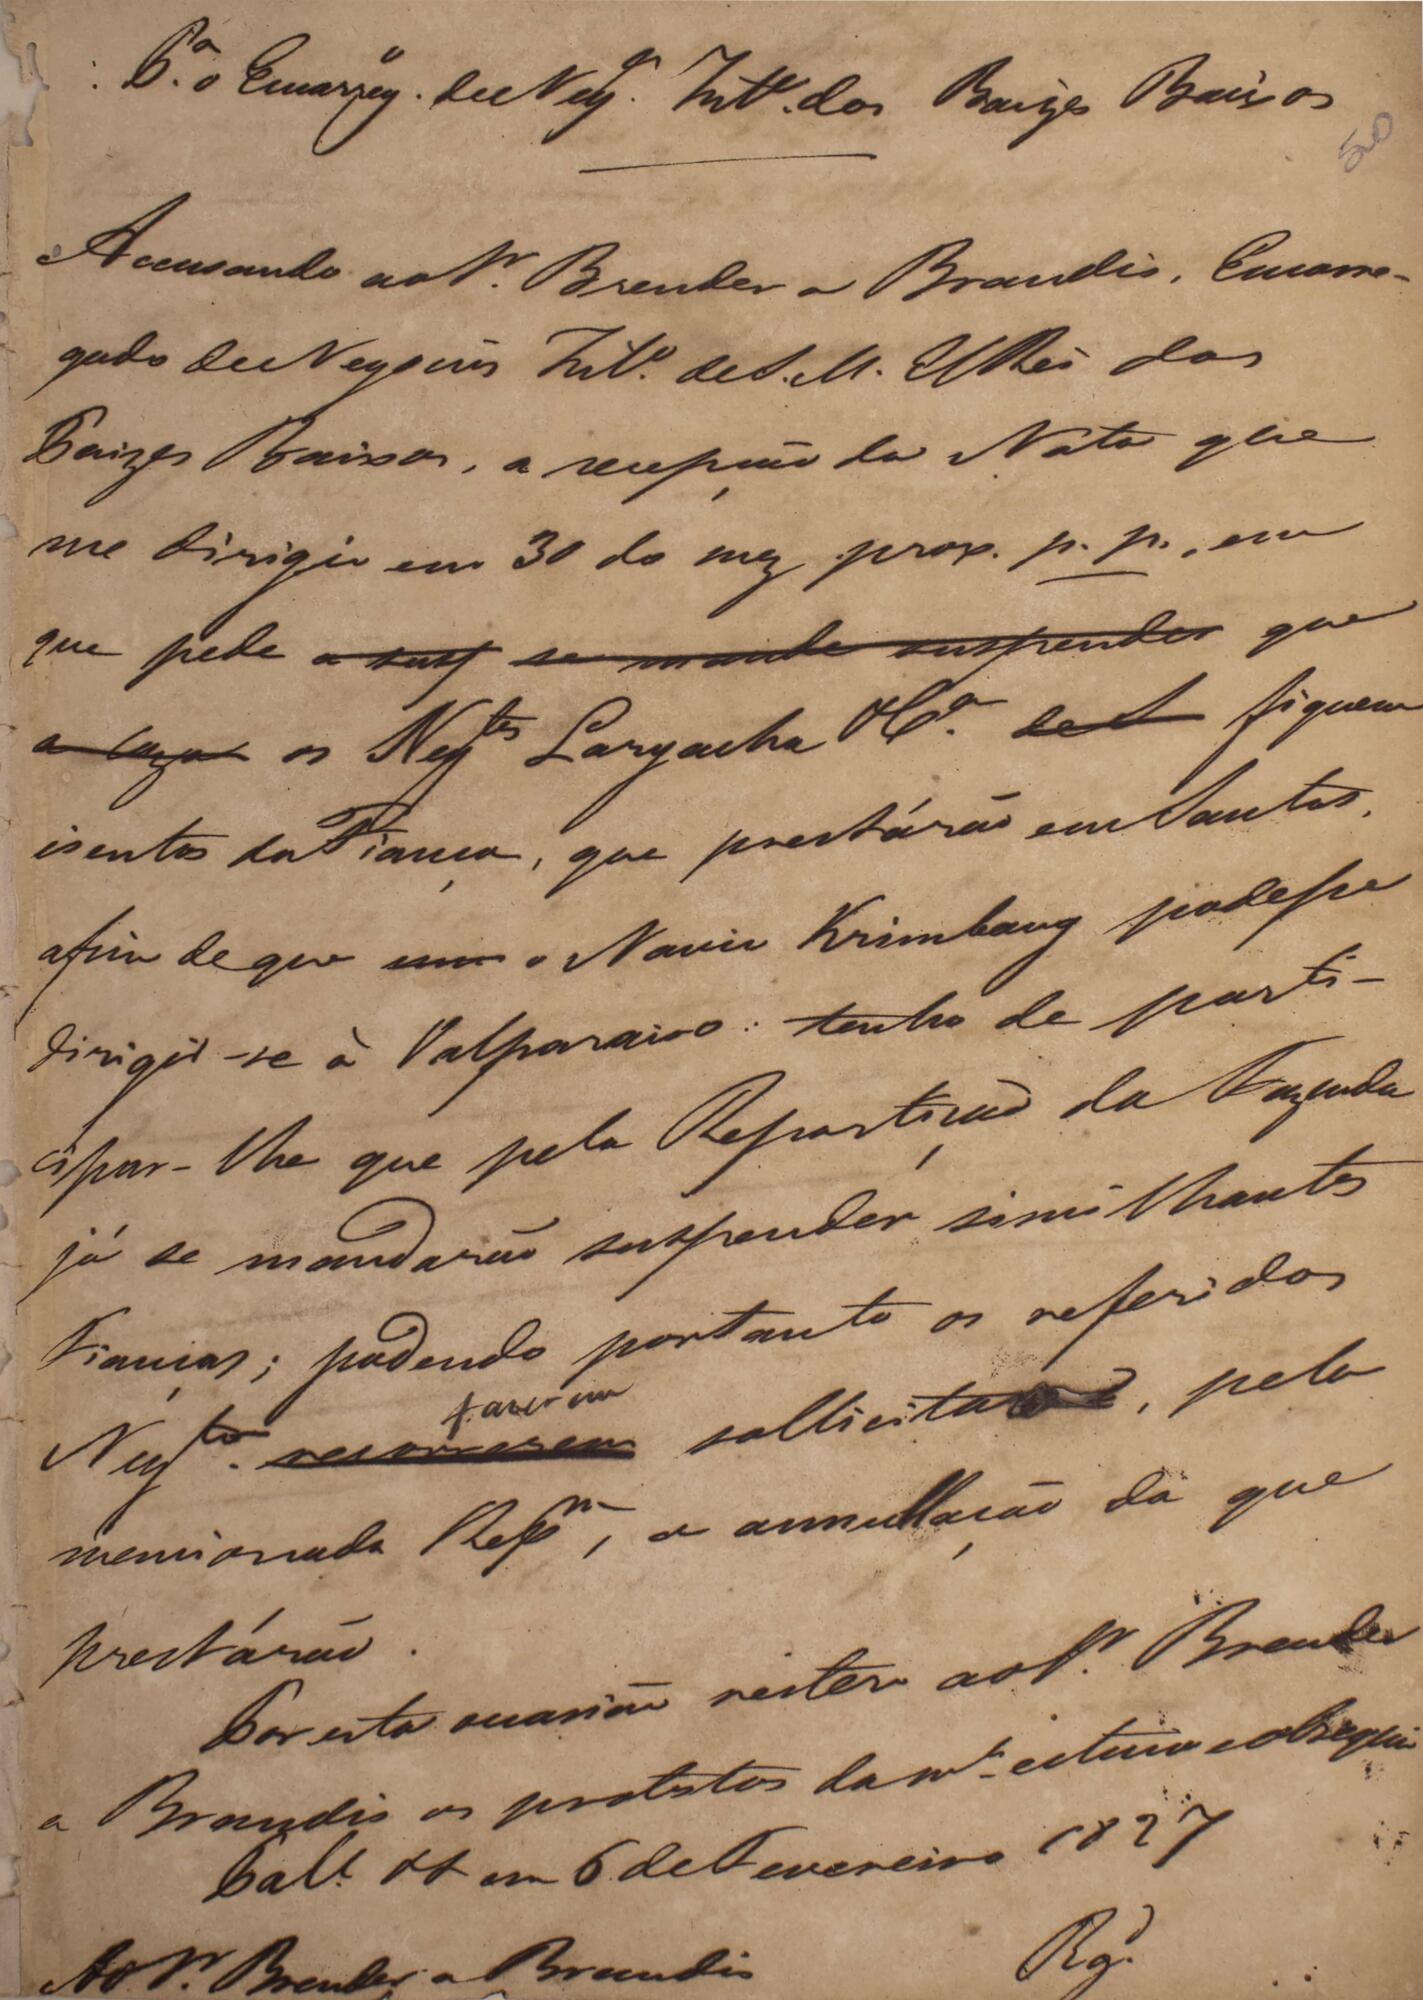 P.ª o Encarreg.º de Neg.ᵒˢ Int.º dos Paizes Baixos
50
Accusando ao S.r Brender a Brandis, Encarre-
gado de Negocios Int.º de S. M. ElRei dos
Paizes Baixos, a recepção da Nota que
me dirigio em 30 do mez prox. p. p., em
que pede a susp se mande suspender que
a caza os Neg.tes Largacha & C.ª de S figuem
isentos da Fiança, que prestárão em Santos,
afim de que um o Navio Krimbang podesse
dirigir-se à Valparaiso: tenho de parti-
cipar-lhe que pela Repartição da Fazenda
já se mandarão suspender similhantes
Fianças; podendo portanto os referidos
fazerem
Neg.tes recorrerem sollicitar, pela
mencionada Rep.m, a annullação da que
prestárão.
Por esta occasião reitero ao S.r Brender
a Brandis os protestos da m.ª estima e obsequio
Pal.º &&. em 6 de Fevereiro 1827
Rg.º
Ao S.r Brender a Brandis